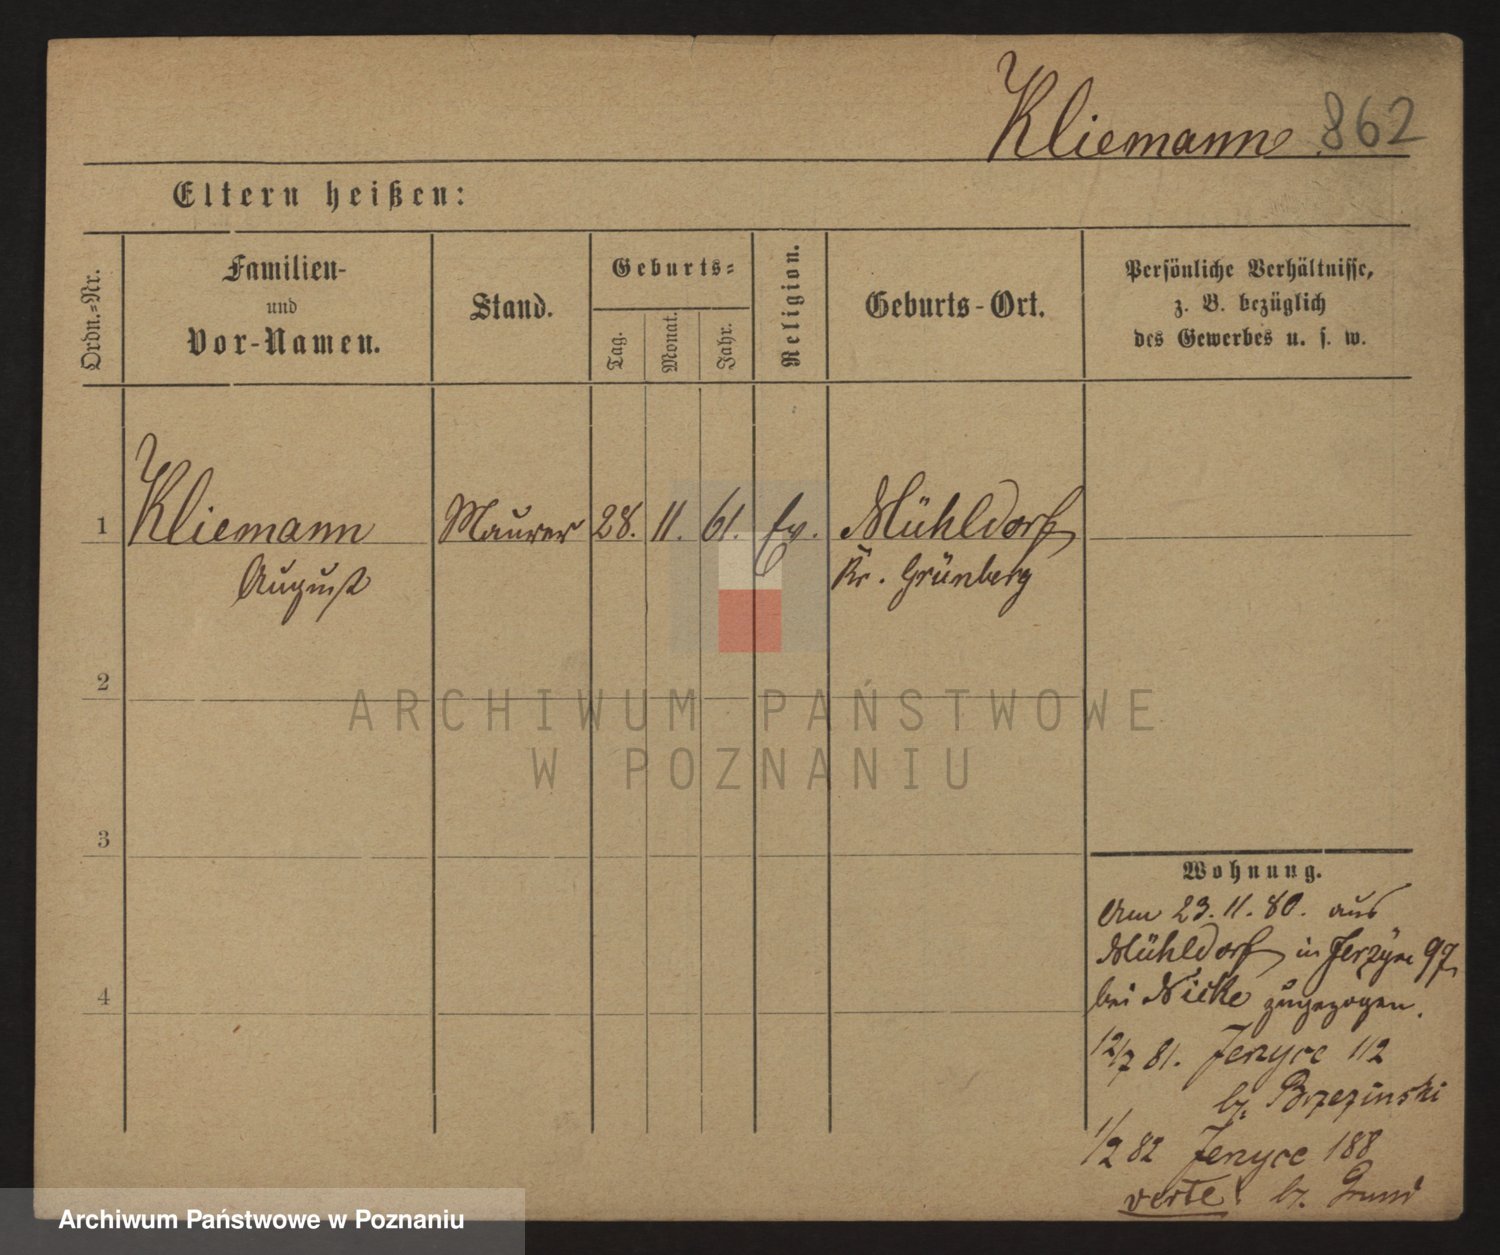 Kliemann 862
Eltern heißen:
Ordn.-Nr.
Familien-
und
Vor-Namen.
Stand.
Geburts-
Tag.
Monat.
Jahr.
Religion.
Geburts-Ort.
Persönliche Verhältnisse,
z. B. bezüglich
des Gewerbes u. s. w.
1 Kliemann Maurer 28. 11. 61. Ev. Mühldorf
August Kr. Grünberg
2
3
4
Wohnung.
Am 23.11.80. aus
Mühldorf in Jerzyce 97
bei Nicke zugezogen.
12/7 81. Jerzyce 112
bz. Brzezinski
1/2 82 Jerzyce 188
verte! bz.
ARCHIWUM PAŃSTWOWE
W POZNANIU
Archiwum Państwowe w Poznaniu